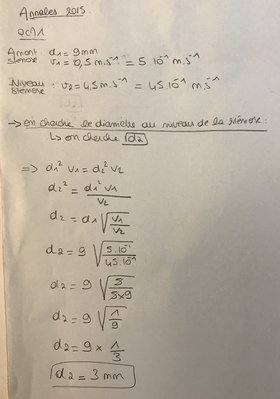 Annales 2015.
QCM1
Amont sténose d₁ = 9mm
v₁ = 0,5 m.s⁻¹ = 5.10⁻¹ m.s⁻¹
Niveau sténose : v₂ = 4,5 m.s⁻¹ = 45.10⁻¹ m.s⁻¹
→ on cherche le diamètre au niveau de la sténose :
↳ on cherche d₂
⇒ d₁² v₁ = d₂² v₂
d₂² = d₁² v₁ / v₂
d₂ = d₁ √(v₁ / v₂)
d₂ = 9 √(5.10⁻¹ / 45.10⁻¹)
d₂ = 9 √(5 / 5×9)
d₂ = 9 √(1 / 9)
d₂ = 9 × 1/3
d₂ = 3 mm